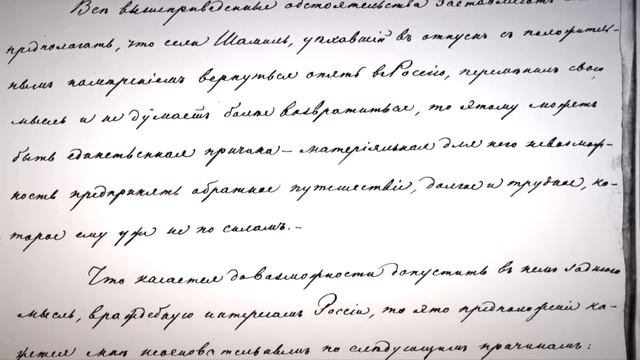 Всѣ вышеприведенные обстоятельства заставляютъ
предполагать, что если Шамиль, уѣхавшій въ отпускъ съ положитель-
нымъ намѣреніемъ вернуться опять въ Россію, перемѣнилъ свою
мысль и не думаетъ болѣе возвратиться, то этому можетъ
быть единственная причина – матеріяльная для него невозмож-
ность предпринять обратное путешествіе, долгое и трудное, ко-
торое ему уже не по силамъ. –
Что касается до возможности допустить въ немъ заднюю
мысль, враждебную интересамъ Россіи, то это предположеніе ка-
жется мнѣ неосновательнымъ по слѣдующимъ причинамъ: